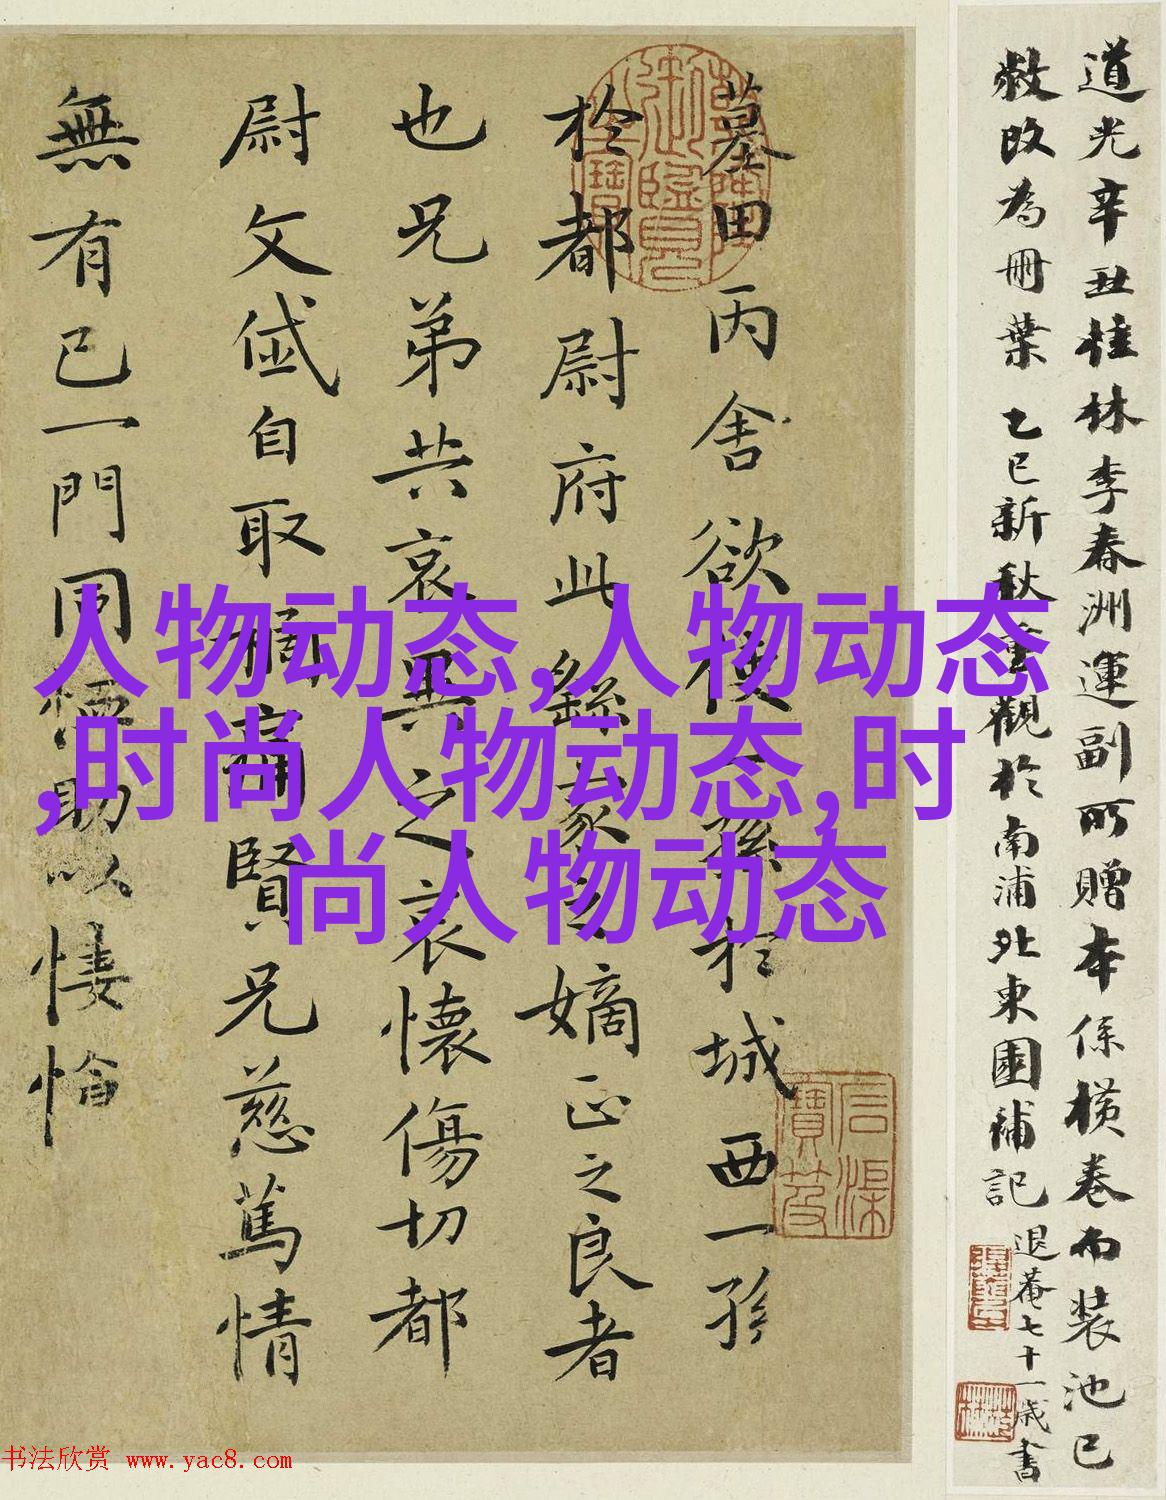 道光辛丑桂林李春洲運副所贈本係橫卷而裝池已
敝改為冊葉 乙巳新秋重觀於南浦北東園補記
退菴七十一歲書
墓田丙舍欲使一孫於城西一孫
於都尉府此繇家之嫡正之良者
也兄弟共哀異之哀懷傷切都
尉文岱自取禍痛賢兄慈篤情
無有已一門同恤助以悽愴
人物动态,人物动态
,时尚人物动态,时
尚人物动态
书法欣赏 www.yac8.com